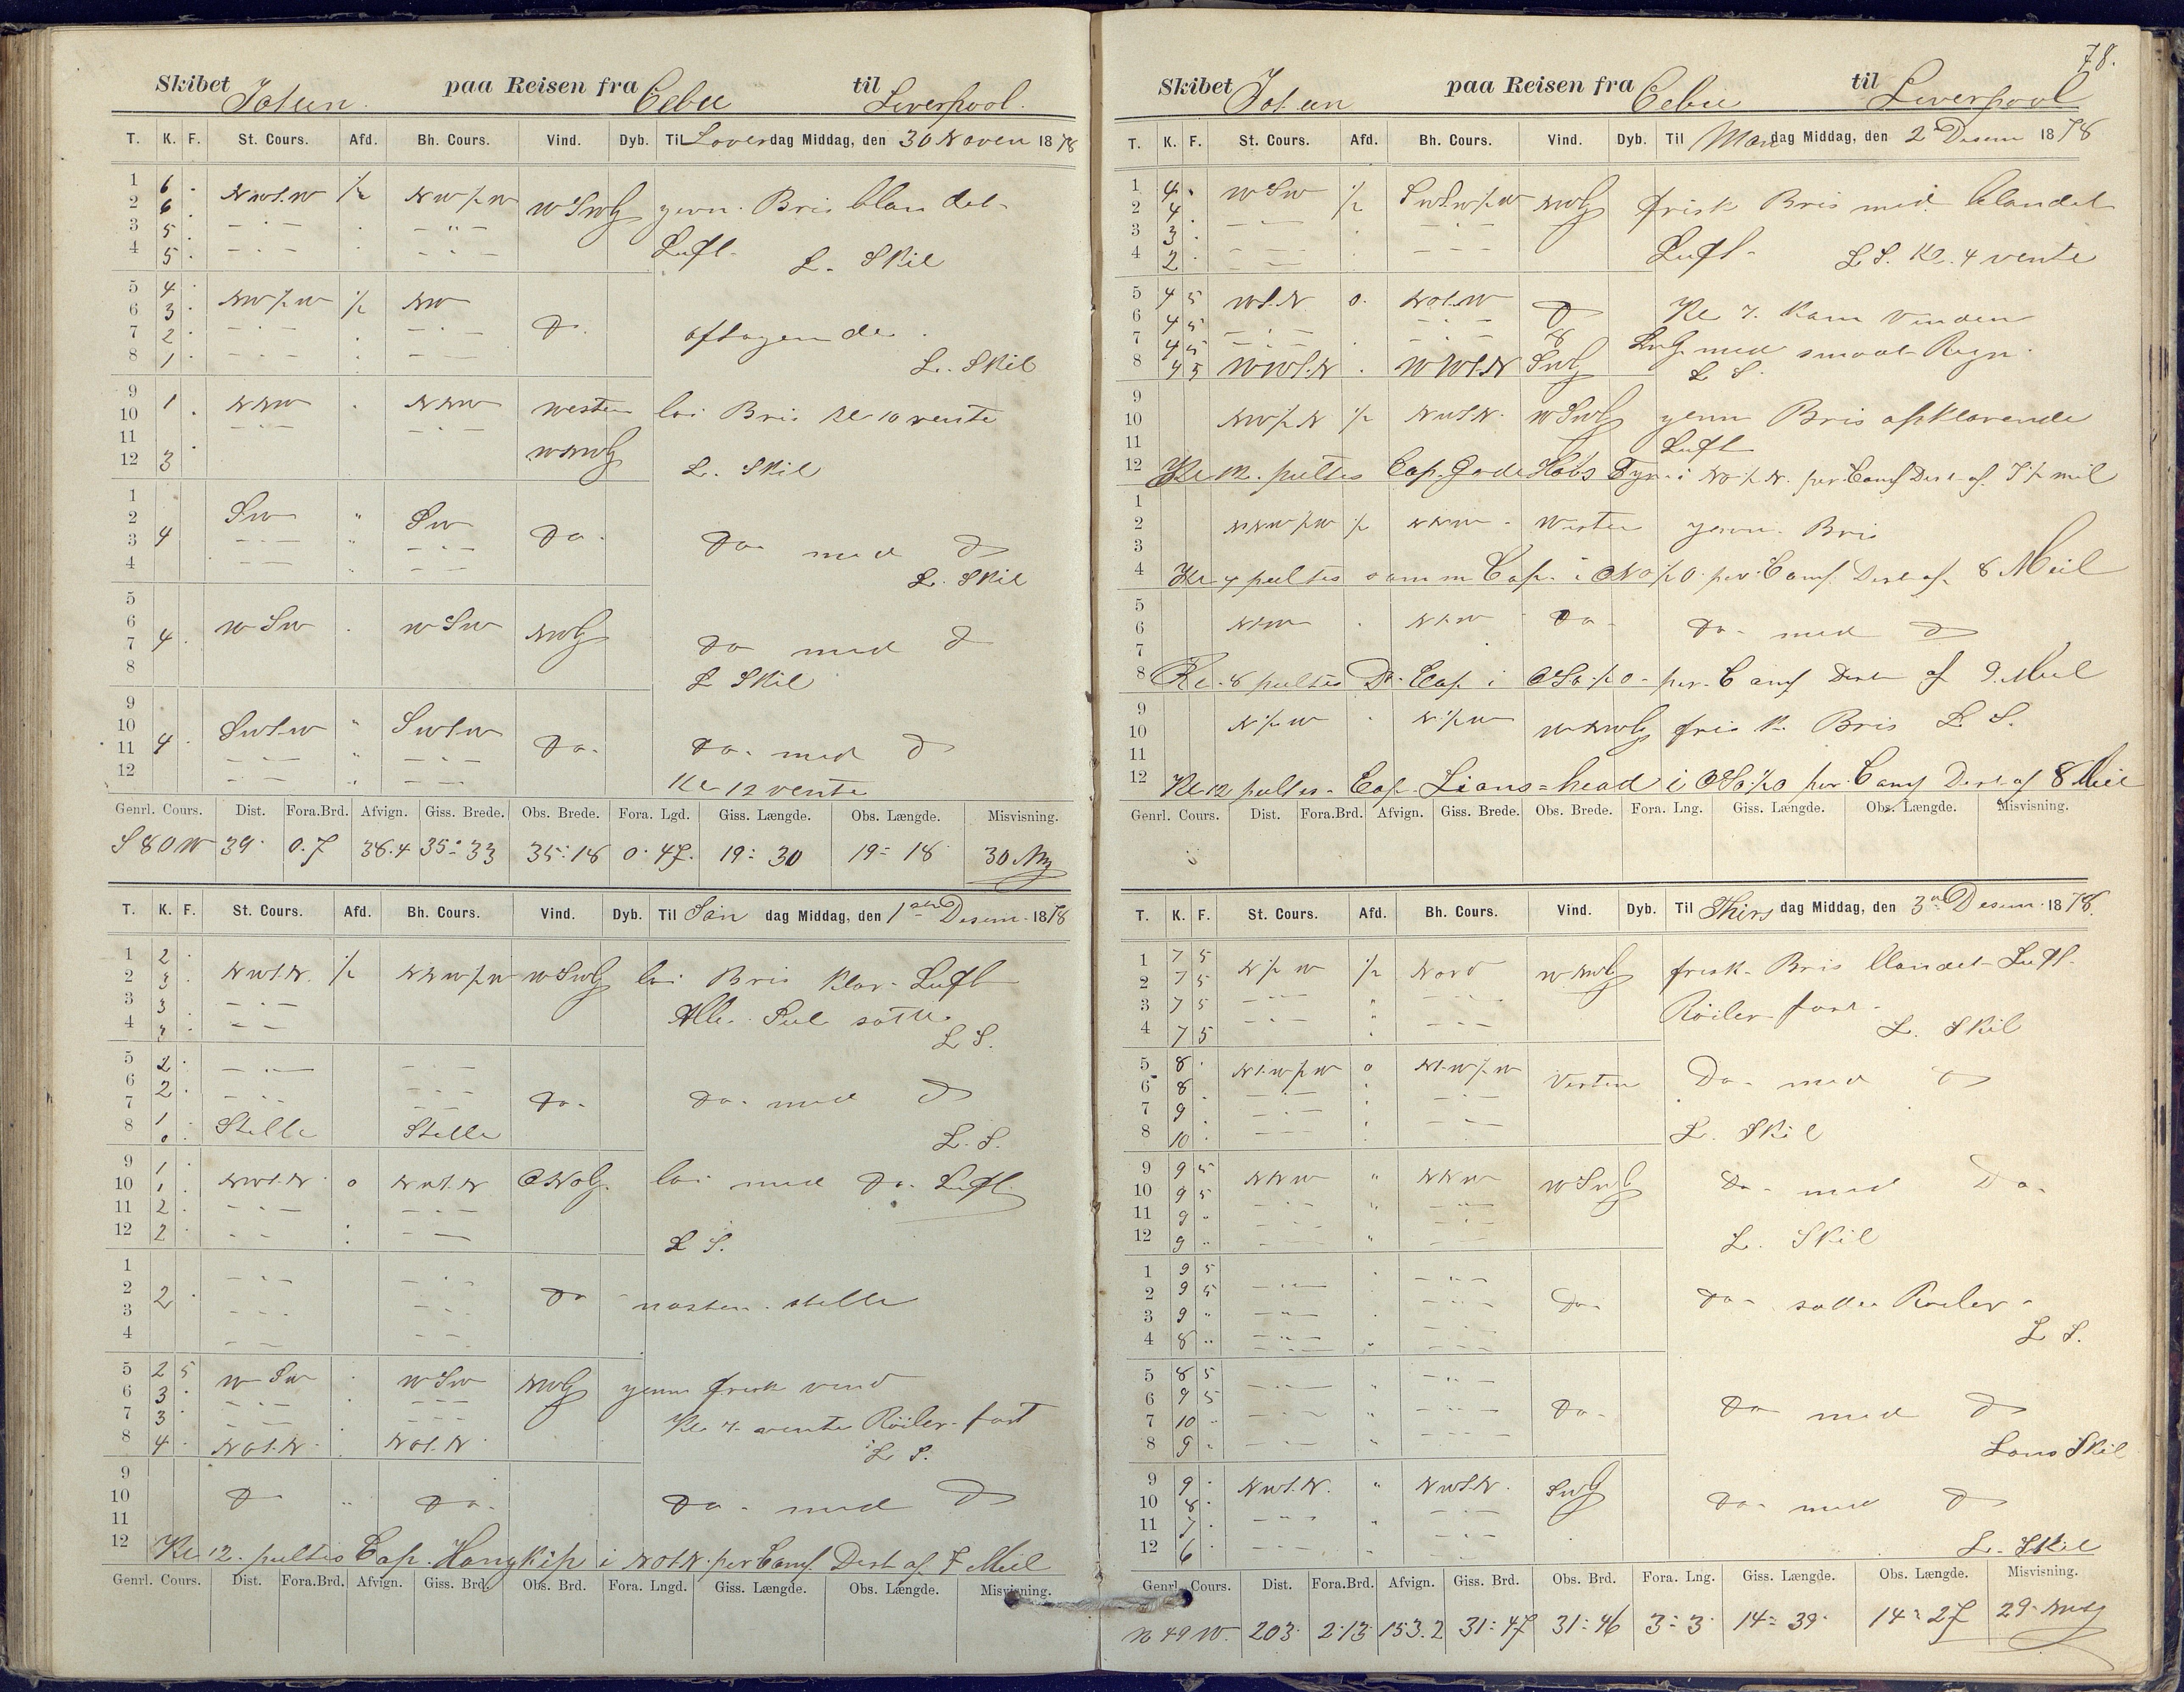 Skibet Jotun paa Reisen fra Cebu til Liverpool.
T. K. F. St. Cours. Afd. Bh. Cours. Vind. Dyb. Til Loverdag Middag, den 30 Noven 1878
1 6 . NWt.W ½ NW½W WSWG jevn. Bris blandet
2 6
3 5 .
4 5 . Luft. L. Skil
5 4 NW½W ½ NW
6 3 . Do. aftagende.
7 2 .
8 1 L. Skil
9 1 . NNW NNW Westen lai Bris Kl 10 vente
10
11 WNWG
12 3 L. Skil
1
2 SW " SW Do.
3 4 Do med Do
4 L. Skil
5
6 WSW . WSW NWG
7 4 . Do med Do
8 L Skil
9
10 SWt.W " SWt.W
11 4 . Do. Do. med Do
12 Kl 12 vente
Genrl. Cours. Dist. Fora.Brd. Afvign. Giss. Brede. Obs. Brede. Fora. Lgd. Giss. Længde. Obs. Længde. Misvisning.
S 80 W 39. 0.7 38.4 35°33 35:18 0.47. 19:30 19:18 30
T. K. F. St. Cours. Afd. Bh. Cours. Vind. Dyb. Til Søn dag Middag, den 1ste Desem. 1878
1 2 NWt.N. ½ NNW½W WSWG lai Bris Klar. Luft
2 3
3 3 Alle. Seil satte.
4 3 L S.
5 2
6 2
7 Do. Do. med Do
8 1 0 Stille Stille L. S.
9 1
10 1 NWt.N. 0 NWt.N ONOG. lai med Do. Luft
11 2
12 2 L S.
1
2 2 Do nasten. stille
3
4
5 2 5 WSW . WSW NWG jevn frisk vind
6 3
7 3 Kl 7. vente Röiler. fast
8 4 NOt.N. NOt.N. L S.
9
10 Do Do. Do. med Do
11
12 Kl 12. peiltes Cap. Hangkip i NOtN. per Comp. Dist af 7 Meil
Genrl. Cours. Dist. Fora.Brd. Afvign. Giss. Brd. Obs. Brd. Fora. Lngd. Giss. Længde. Obs. Længde. Misvisning.
78.
Skibet Jotun paa Reisen fra Cebu til Liverpool
T. K. F. St. Cours. Afd. Bh. Cours. Vind. Dyb. Til Mandag Middag, den 2 Desem 1878
1 4 . WSW ½ SWt.W½W NWG frisk Bris med blandet
2 4
3 3 .
4 2 Luft. L S. Kl. 4 vente
5 4 5 Wt.N 0. NOt.W Do Kl 7. kam vinden
6 4 5
7 4 5 med smaat Regn.
8 4 5 WWt.N . WWt.N SWG L S.
9
10 NW½N ½ NWt.N. WSWG jevn Bris afklarende
11 Luft
12 Kl 12. peiltes Cap. Gode Haabs Fyr. i NO½N. per. Comp Dist af. 7½ mil
1
2 NNW½W ½ NNW. Westen jevn. Bris
3
4 Kl 4 peiltes samm Cap. i ONO½O. per. Comp. Dist af 8 Meil
5
6 NNW . NNW Do. Do. med Do
7
8 Kl. 8 peiltes Do. Cap i OSO.½O. per. Comp Dist af 9. Meil
9
10 N½W . N½W WNWG frisk. Bris L. S.
11
12 Kl 12 peiltes. Cap. Lions=head i OSO.½O per. Comp Dist af 8 Meil
Genrl. Cours. Dist. Fora.Brd. Afvign. Giss. Brede. Obs. Brede. Fora. Lng. Giss. Længde. Obs. Længde. Misvisning.
T. K. F. St. Cours. Afd. Bh. Cours. Vind. Dyb. Til Thirsdag Middag, den 3die Desem. 1878.
1 7 5 N½W ½ Nord WNWG frisk. Bris blandet Luft.
2 7 5
3 7 5 Röiler fast.
4 7 5 L. Skil
5 8 . Nt.W½W 0 Nt.W½W Vesten Do. med Do
6 8
7 9
8 10 . L. Skil
9 9 5 NNW " NNW WSWG Do. med Do.
10 9 5
11 9 "
12 9 " L. Skil
1 9 5
2 9 5 Do. Do. satte Röiler.
3 9 "
4 8 " L S.
5 8 5
6 9 5 Do. Do med Do
7 10
8 9 . Lars Skil
9 9 . NWt.N. " NWt.N. SWG
10 8 . Do. med Do
11 7 .
12 6 . L. Skil
Genrl. Cours. Dist. Fora.Brd. Afvign. Giss. Brd. Obs. Brd. Fora. Lng. Giss. Længde. Obs. Længde. Misvisning.
N 49 W. 203. 2.13. 153.2 31:47 31:46 3:3 14:39. 14:27 29.